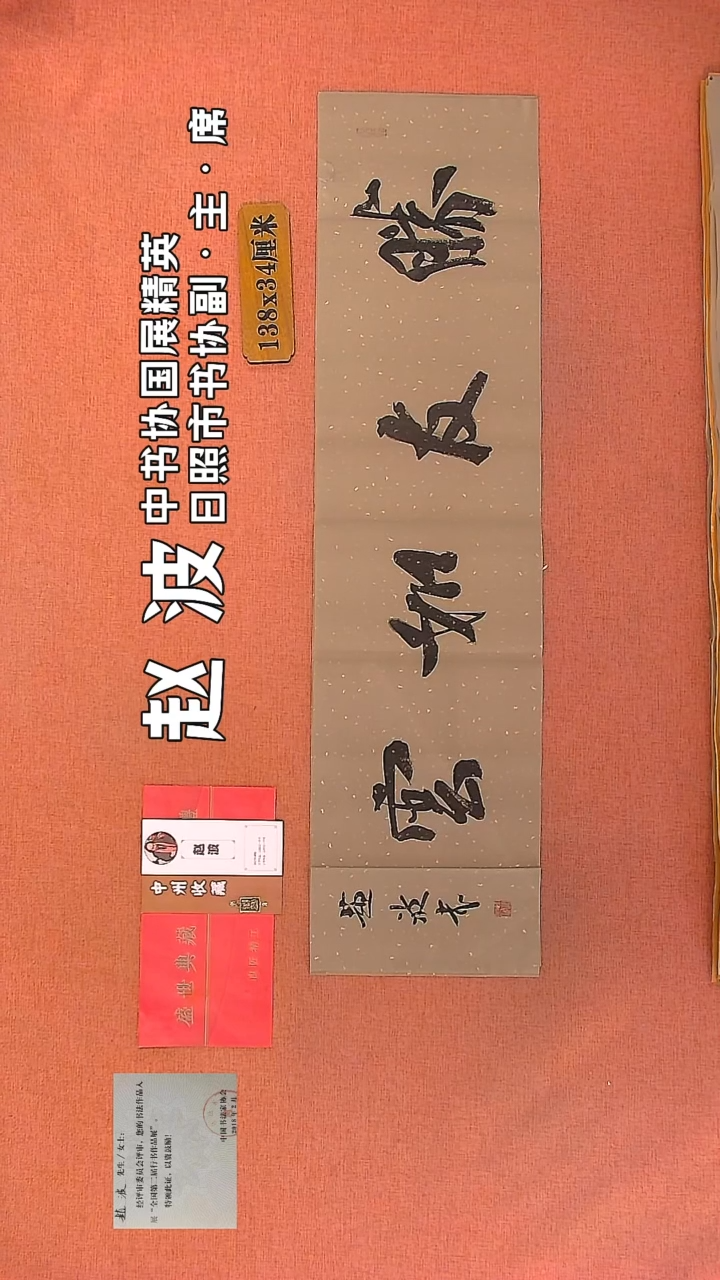 赵波
中书协国展精英
日照市书协副·主·席
138x34厘米
勝友如雲
趙波书
赵波
中州收藏
盛世典藏
赵波 先生/女士:
经评审委员会评审,您的书法作品入
展“全国第二届行书作品展”。
特颁此证,以资鼓励!
中国书法家协会